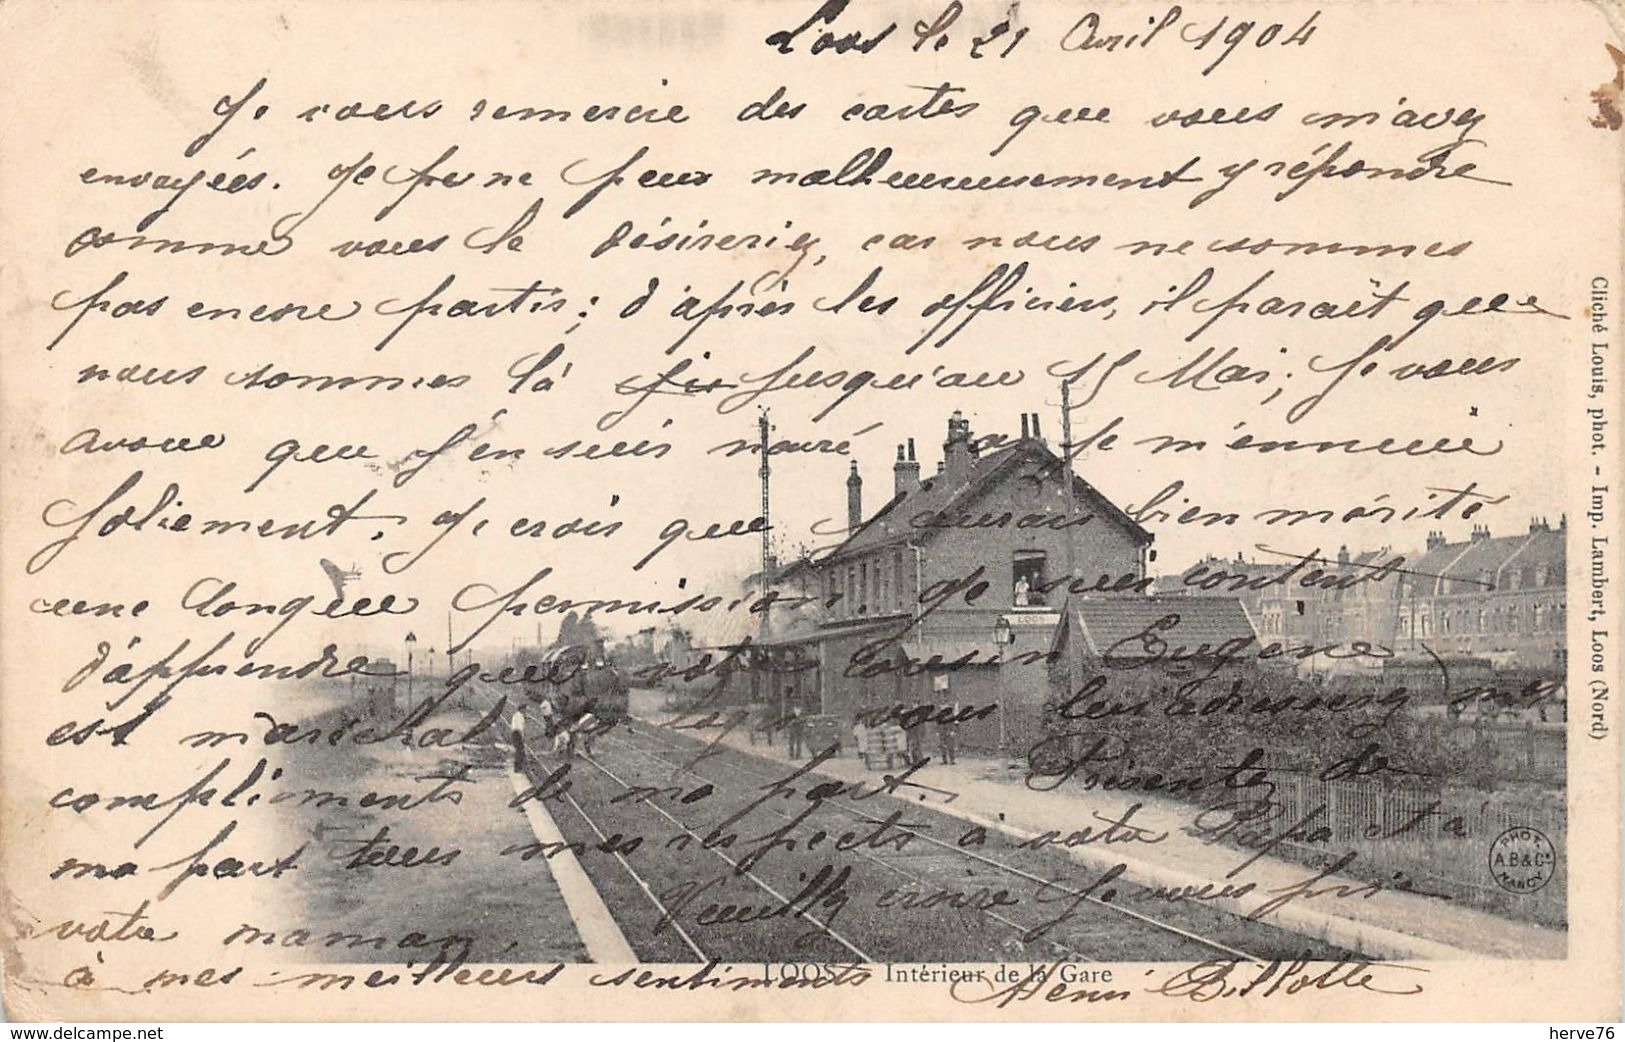 Loos le 21 Avril 1904
Je vous remercie des cartes que vous m'avez
envoyées. Je ne peux malheureusement y répondre
comme vous le désireriez, car nous ne sommes
pas encore partis; d'après les officiers, il paraît que
nous sommes là jusqu'au 15 Mai; Je vous
avoue que j'en suis navré car je m'ennuie
joliement. Je crois que j'aurais bien mérité
une longue permission. Je suis content
d'apprendre que votre cousin Eugene
est maréchal des logis vous lui adresserez mes
compliments de ma part. Présentez de
ma part tous mes respects à votre Papa et à
votre maman. Veuillez croire Je vous prie
à mes meilleurs sentiments Henri Billotte
LOOS
LOOS - Intérieur de la Gare
Cliché Louis, phot. - Imp. Lambert, Loos (Nord)
PHOT.
A.B & Cie
NANCY
www.delcampe.net
herve76